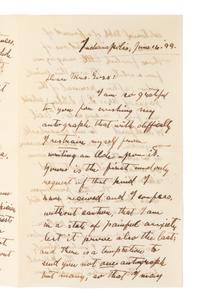 Indianapolis, June 16. 99.
Dear Mrs. Goss:
I am so grateful
to you for wishing my
autograph that with difficulty
I restrain myself from
writing an Ode upon it.
Yours is the first
request of that kind I
have received and I confess,
without caution, that I am
in a state of painful anxiety
lest it prove also the last;
and there is a temptation to
send you not one autograph
but many; so that I may